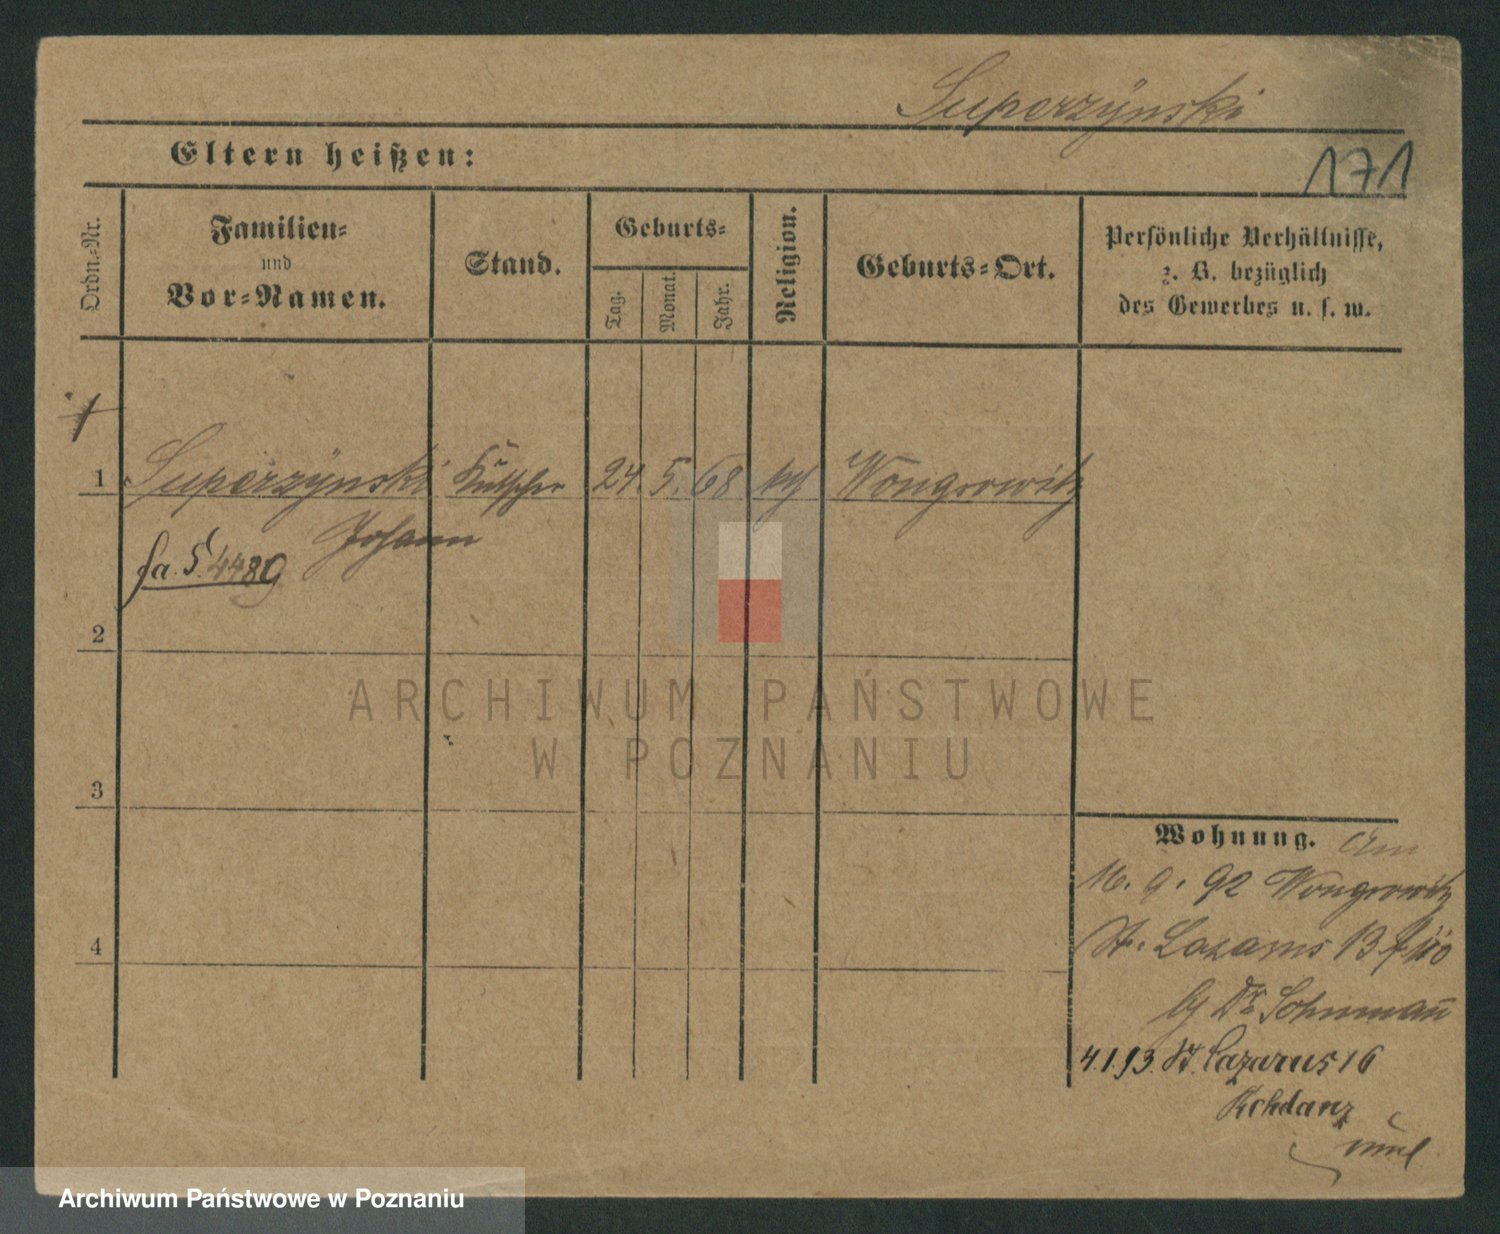 Superzÿnski
Eltern heißen:
171
Ordn.-Nr.
Familien-
und
Vor-Namen.
Stand.
Geburts-
Tag.
Monat.
Jahr.
Religion.
Geburts-Ort.
Persönliche Verhältnisse,
z. B. bezüglich
des Gewerbes u. s. w.
1
Superzÿnski Kutscher 24. 5. 68 Wongrowitz
Johann
fa. 5. 4489
2
ARCHIWUM PAŃSTWOWE
W POZNANIU
3
Wohnung.
9. 92 Wongrowitz
4
St. Lazarus 13
Dr.
4.1.93. St. Lazarus 16
Archiwum Państwowe w Poznaniu